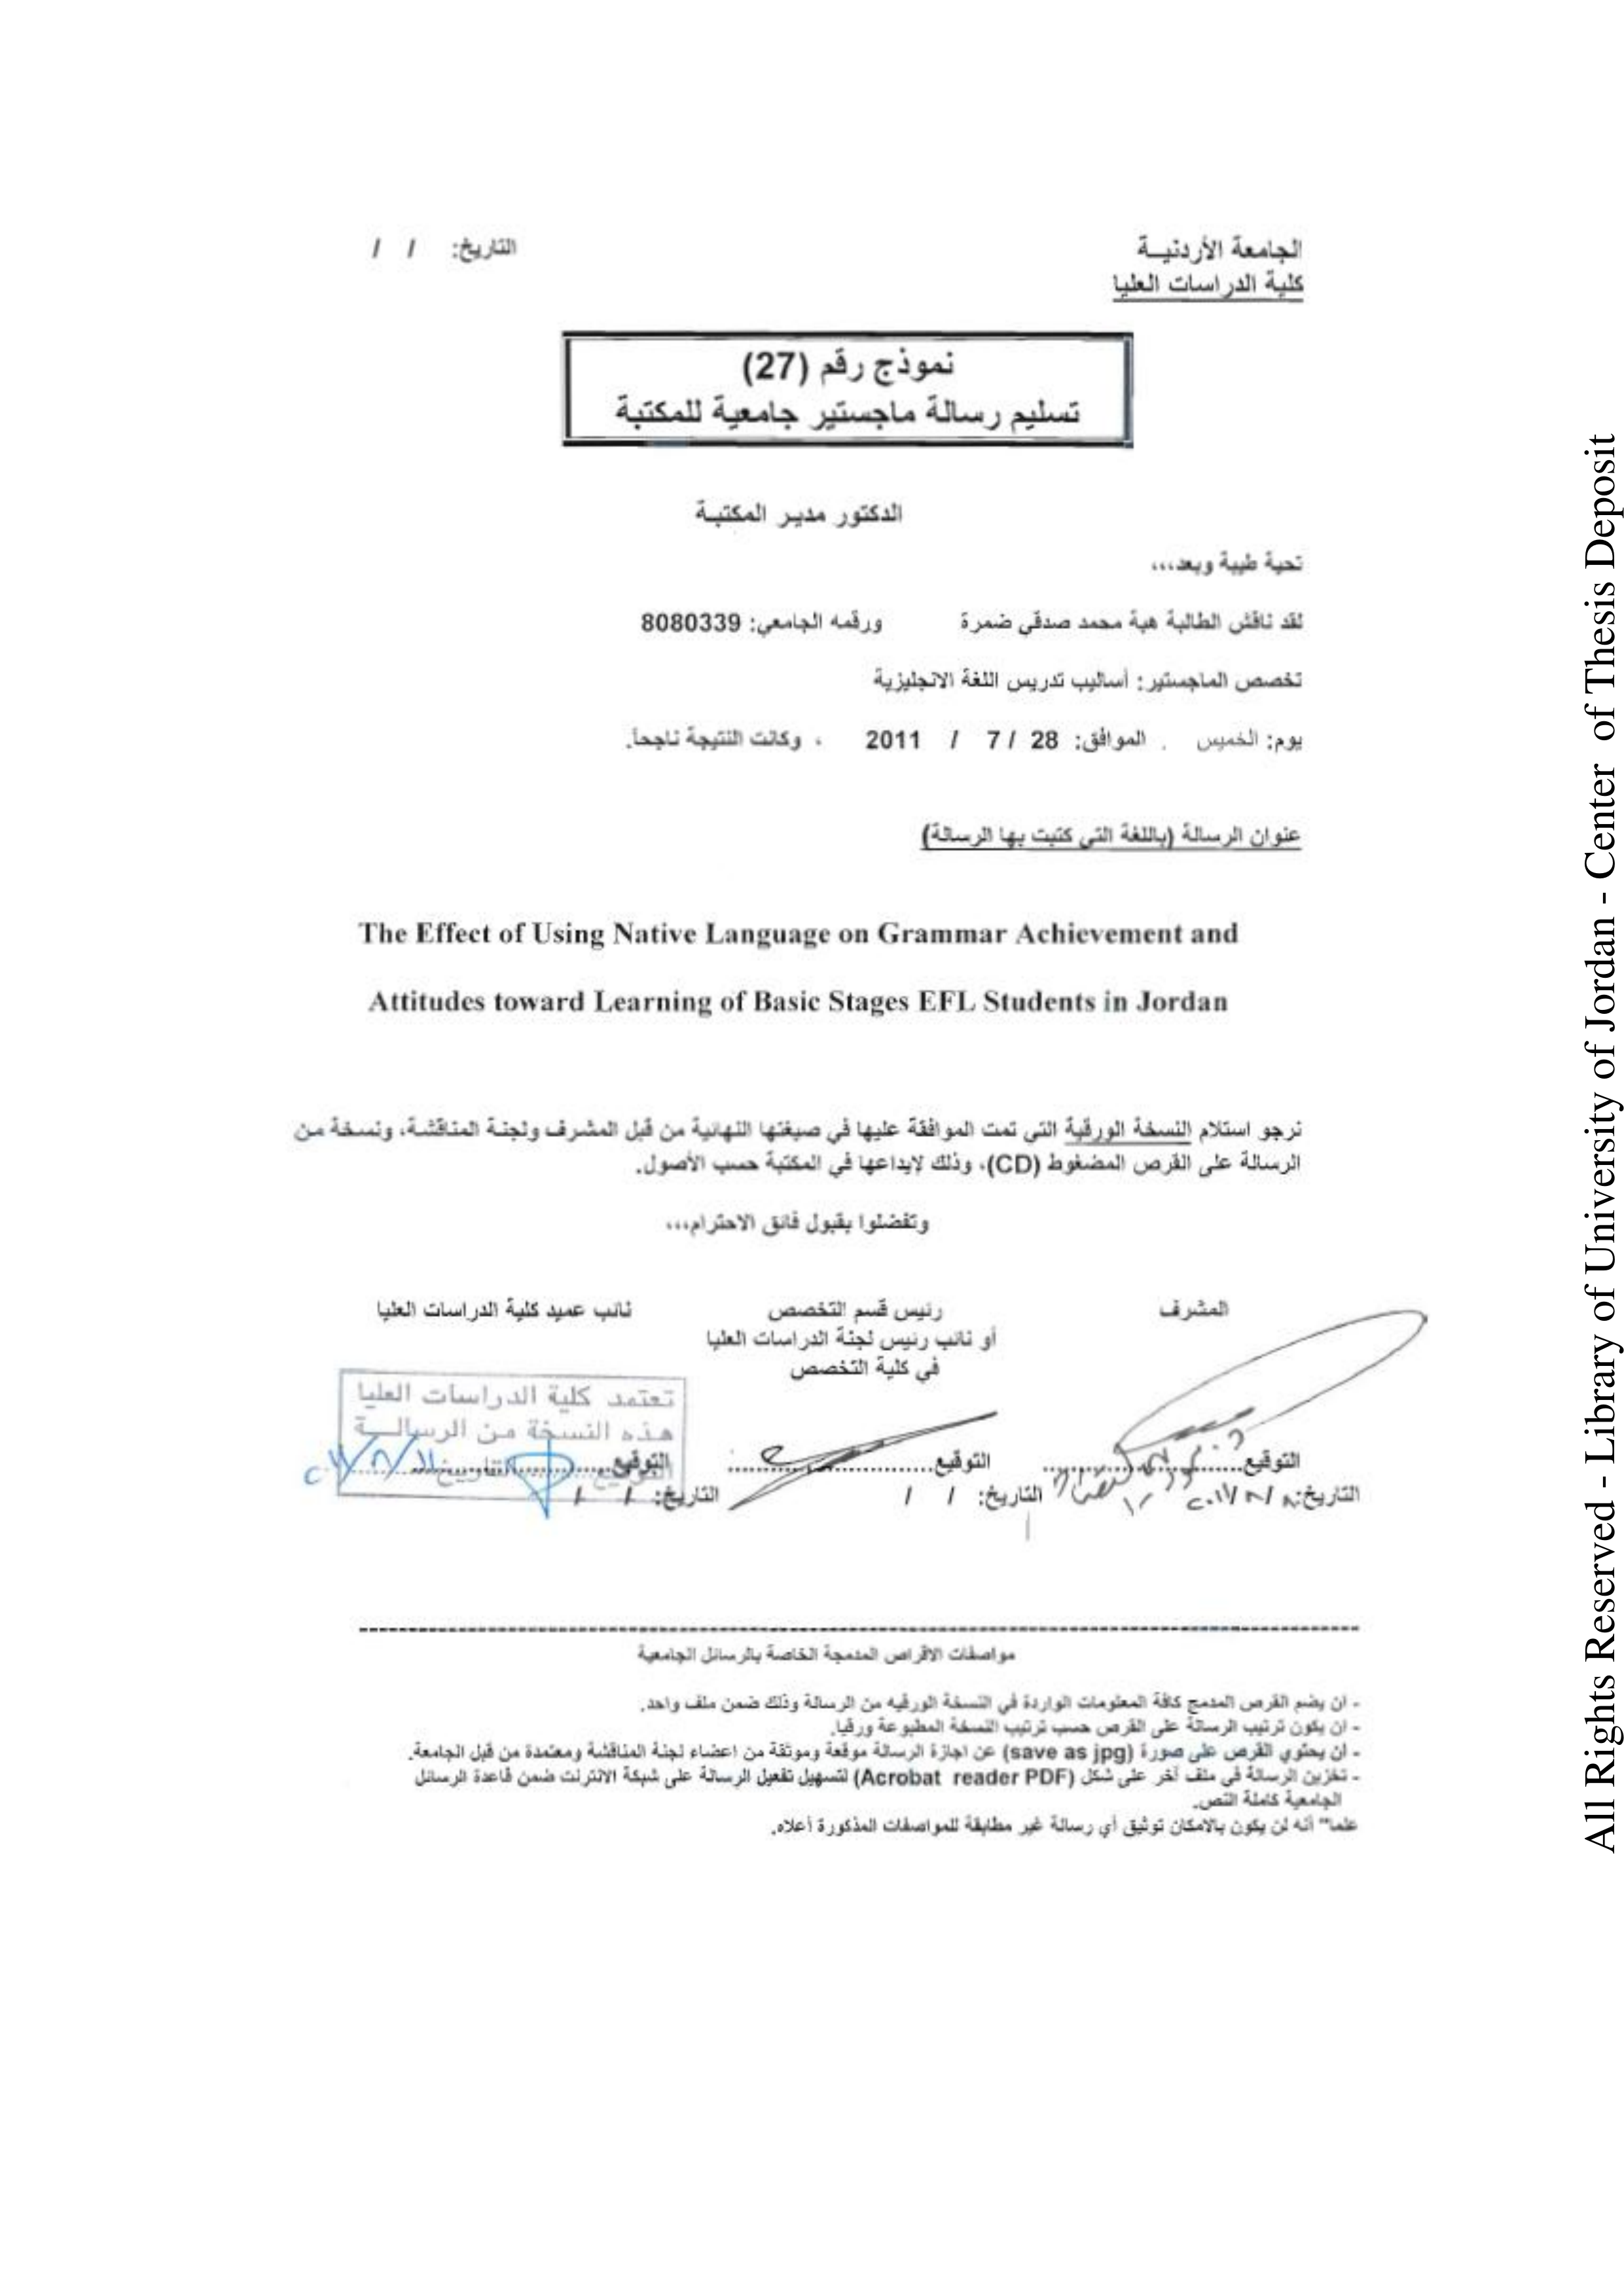 الجامعة الأردنيــة
التاريخ: / /
كلية الدراسات العليا
نموذج رقم (27)
تسليم رسالة ماجستير جامعية للمكتبة
الدكتور مدير المكتبة
تحية طيبة وبعد،،،
لقد ناقش الطالبة هبة محمد صدقي ضمرة ورقمه الجامعي: 8080339
تخصص الماجستير: أساليب تدريس اللغة الانجليزية
يوم: الخميس . الموافق: 28 / 7 / 2011 ، وكانت النتيجة ناجحاً.
عنوان الرسالة (باللغة التي كتبت بها الرسالة)
The Effect of Using Native Language on Grammar Achievement and
Attitudes toward Learning of Basic Stages EFL Students in Jordan
نرجو استلام النسخة الورقية التي تمت الموافقة عليها في صيغتها النهائية من قبل المشرف ولجنة المناقشة، ونسخة من
الرسالة على القرص المضغوط (CD)، وذلك لإيداعها في المكتبة حسب الأصول.
وتفضلوا بقبول فائق الاحترام،،،
المشرف
رئيس قسم التخصص
أو نائب رئيس لجنة الدراسات العليا
في كلية التخصص
نائب عميد كلية الدراسات العليا
تعتمد كلية الدراسات العليا
هذه النسخة من الرسالــة
التوقيع التوقيع التوقيع
التاريخ: التاريخ: / / التاريخ: / /
مواصفات الاقراص المدمجة الخاصة بالرسائل الجامعية
- ان يضم القرص المدمج كافة المعلومات الواردة في النسخة الورقيه من الرسالة وذلك ضمن ملف واحد.
- ان يكون ترتيب الرسالة على القرص حسب ترتيب النسخة المطبوعة ورقيا.
- ان يحتوي القرص على صورة (save as jpg) عن اجازة الرسالة موقعة وموثقة من اعضاء لجنة المناقشة ومعتمدة من قبل الجامعة.
- تخزين الرسالة في ملف آخر على شكل (Acrobat reader PDF) لتسهيل تفعيل الرسالة على شبكة الانترنت ضمن قاعدة الرسائل
الجامعية كاملة النص.
علما" أنه لن يكون بالامكان توثيق أي رسالة غير مطابقة للمواصفات المذكورة أعلاه.
All Rights Reserved - Library of University of Jordan - Center of Thesis Deposit